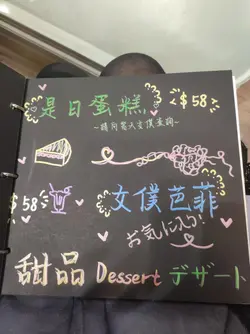 是日蛋糕 $58
~請向客人文僕查詢~
$58 文僕芭菲
お気に入り!
甜品 Dessert デザート